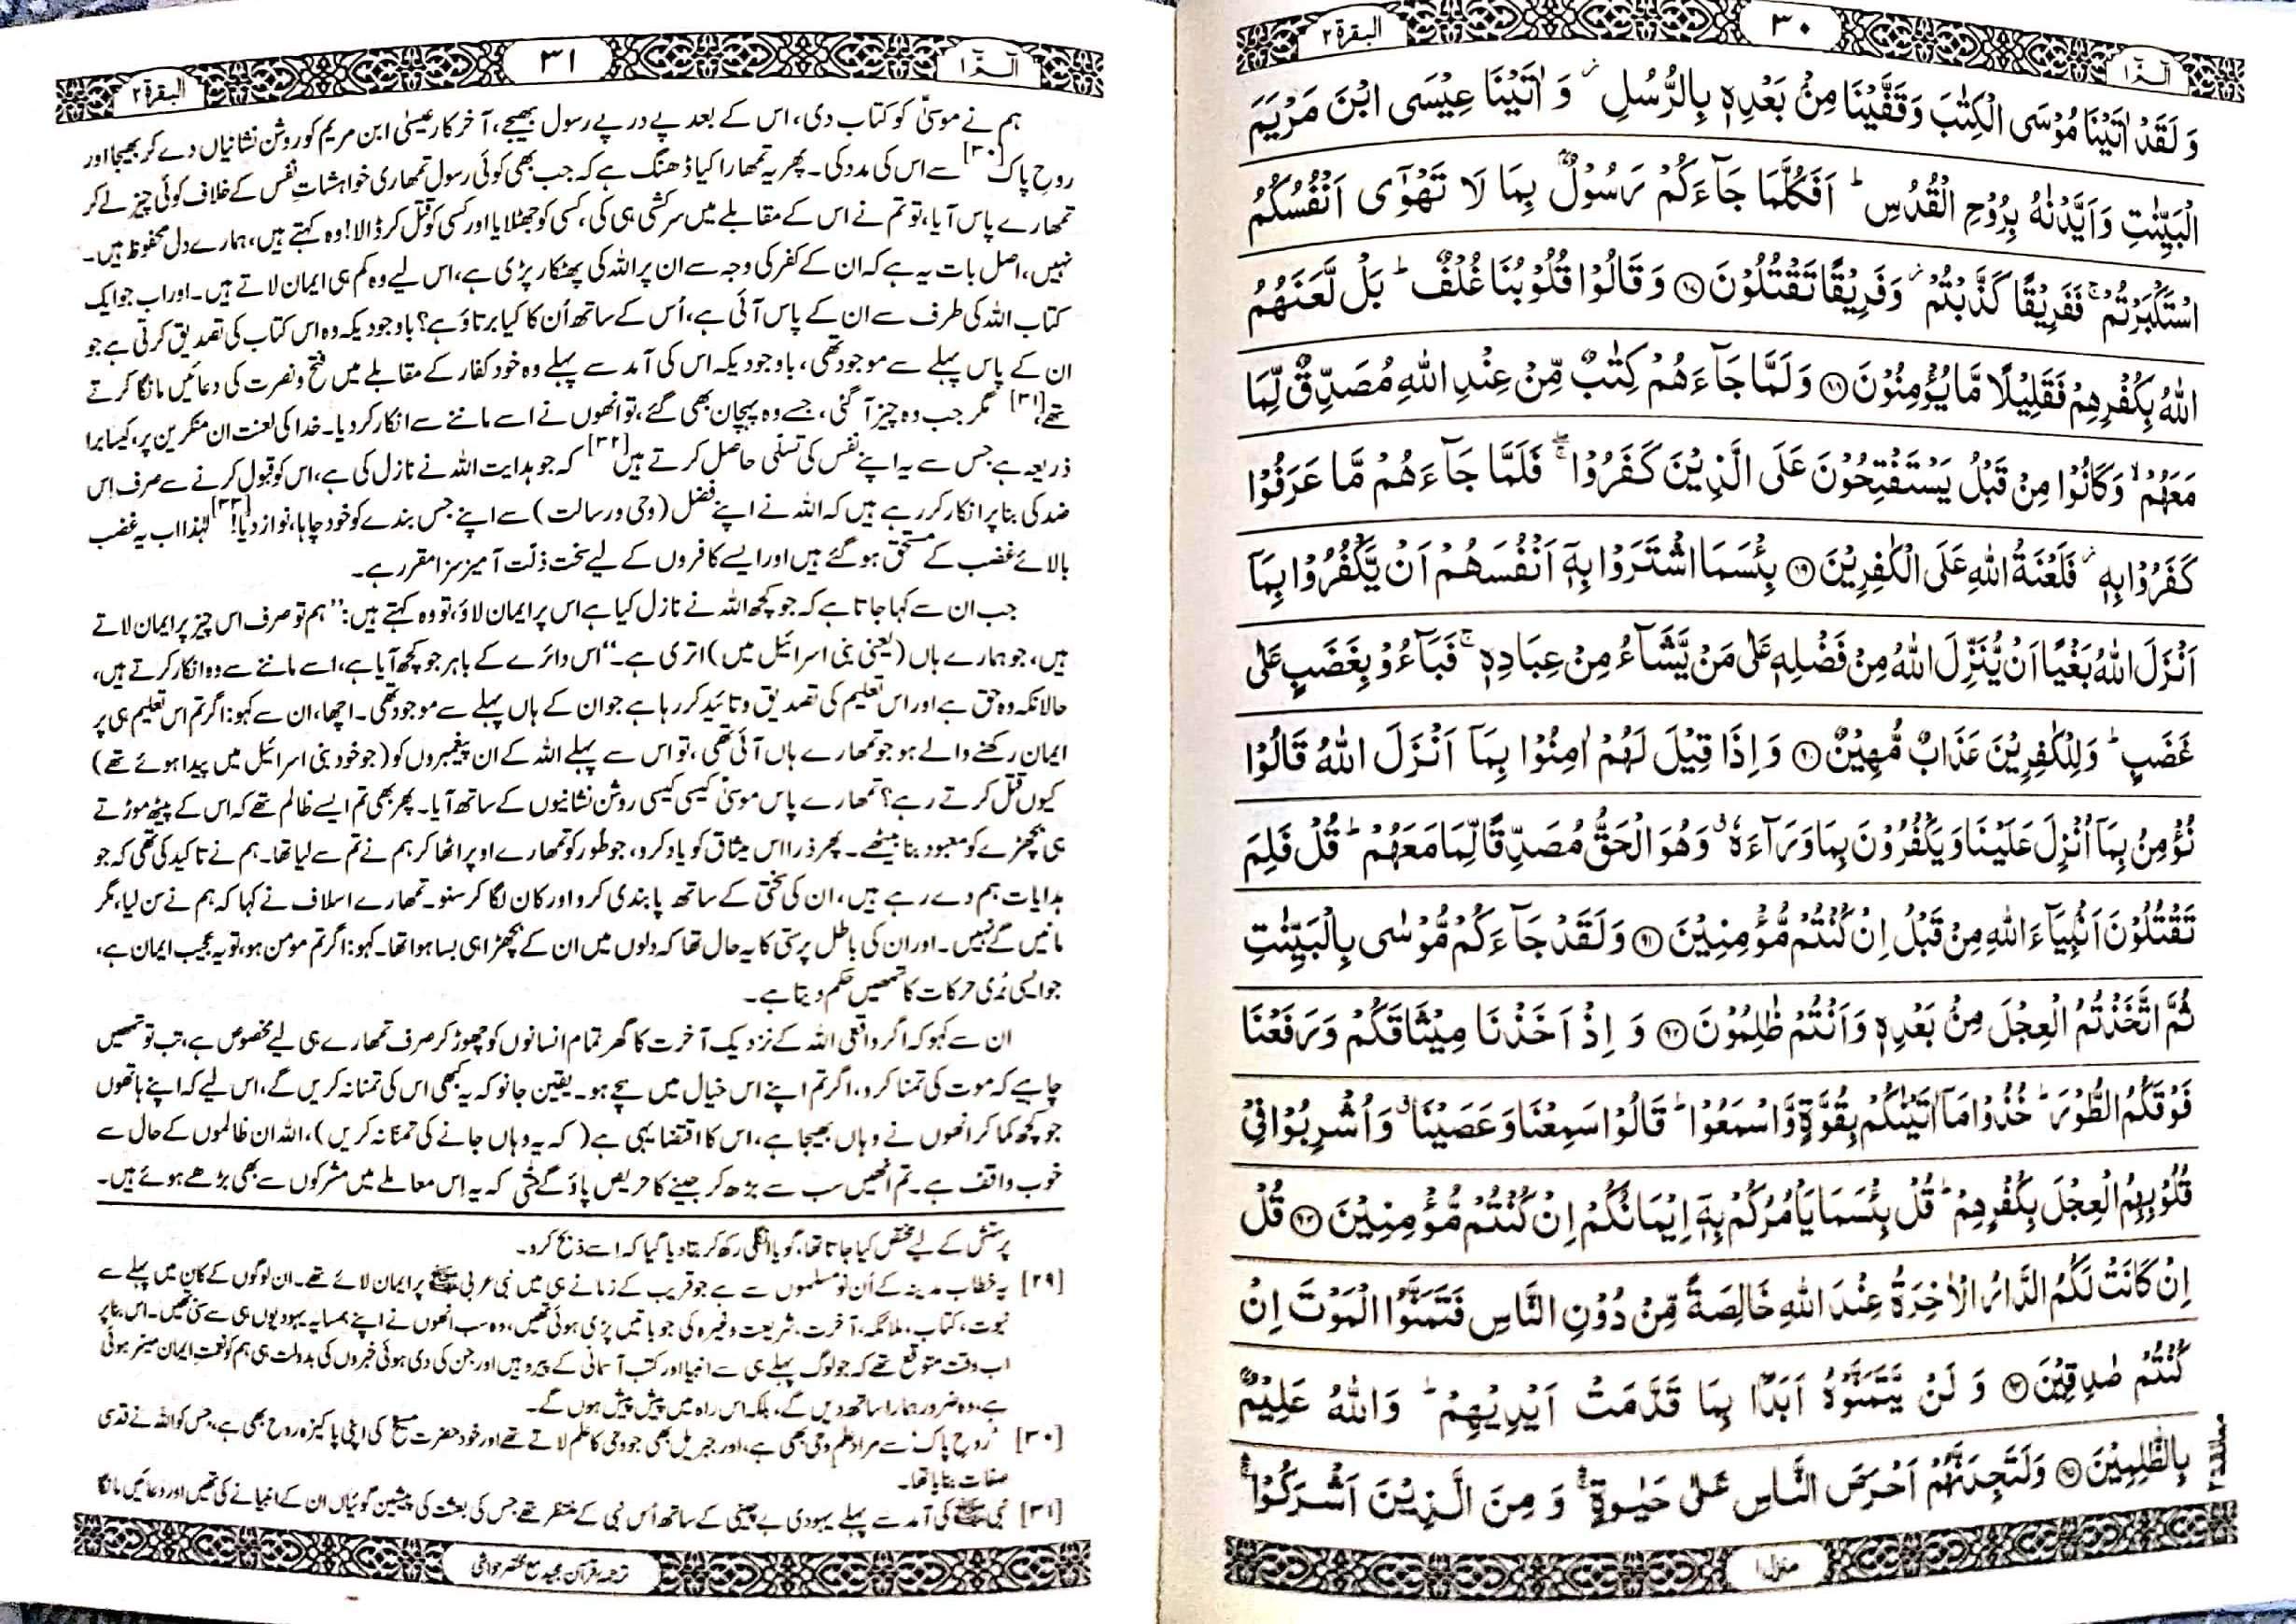 الٓمّٓ ۱
۳۰
البقرة ۲
وَ لَقَدْ اٰتَيْنَا مُوْسَى الْكِتٰبَ وَقَفَّيْنَا مِنْۢ بَعْدِهٖ بِالرُّسُلِ ۡ وَ اٰتَيْنَا عِيْسَى ابْنَ مَرْيَمَ
الْبَيِّنٰتِ وَاَيَّدْنٰهُ بِرُوْحِ الْقُدُسِ ؕ اَفَكُلَّمَا جَآءَكُمْ رَسُوْلٌۢ بِمَا لَا تَهْوٰۤى اَنْفُسُكُمُ
اسْتَكْبَرْتُمْ ۚ فَفَرِيْقًا كَذَّبْتُمْ ۡ وَفَرِيْقًا تَقْتُلُوْنَ ۝۸۷ وَقَالُوْا قُلُوْبُنَا غُلْفٌ ؕ بَلْ لَّعَنَهُمُ
اللّٰهُ بِكُفْرِهِمْ فَقَلِيْلًا مَّا يُؤْمِنُوْنَ ۝۸۸ وَلَمَّا جَآءَهُمْ كِتٰبٌ مِّنْ عِنْدِ اللّٰهِ مُصَدِّقٌ لِّمَا
مَعَهُمْ ۙ وَكَانُوْا مِنْ قَبْلُ يَسْتَفْتِحُوْنَ عَلَى الَّذِيْنَ كَفَرُوْا ۚۖ فَلَمَّا جَآءَهُمْ مَّا عَرَفُوْا
كَفَرُوْا بِهٖ ۡ فَلَعْنَةُ اللّٰهِ عَلَى الْكٰفِرِيْنَ ۝۸۹ بِئْسَمَا اشْتَرَوْا بِهٖۤ اَنْفُسَهُمْ اَنْ يَّكْفُرُوْا بِمَاۤ
اَنْزَلَ اللّٰهُ بَغْيًا اَنْ يُّنَزِّلَ اللّٰهُ مِنْ فَضْلِهٖ عَلٰى مَنْ يَّشَآءُ مِنْ عِبَادِهٖ ۚ فَبَآءُوْ بِغَضَبٍ عَلٰى
غَضَبٍ ؕ وَلِلْكٰفِرِيْنَ عَذَابٌ مُّهِيْنٌ ۝۹۰ وَاِذَا قِيْلَ لَهُمْ اٰمِنُوْا بِمَاۤ اَنْزَلَ اللّٰهُ قَالُوْا
نُؤْمِنُ بِمَاۤ اُنْزِلَ عَلَيْنَا وَيَكْفُرُوْنَ بِمَا وَرَآءَهٗ ۗ وَهُوَ الْحَقُّ مُصَدِّقًا لِّمَا مَعَهُمْ ؕ قُلْ فَلِمَ
تَقْتُلُوْنَ اَنْۢبِيَآءَ اللّٰهِ مِنْ قَبْلُ اِنْ كُنْتُمْ مُّؤْمِنِيْنَ ۝۹۱ وَلَقَدْ جَآءَكُمْ مُّوْسٰى بِالْبَيِّنٰتِ
ثُمَّ اتَّخَذْتُمُ الْعِجْلَ مِنْۢ بَعْدِهٖ وَاَنْتُمْ ظٰلِمُوْنَ ۝۹۲ وَ اِذْ اَخَذْنَا مِيْثَاقَكُمْ وَرَفَعْنَا
فَوْقَكُمُ الطُّوْرَ ؕ خُذُوْا مَاۤ اٰتَيْنٰكُمْ بِقُوَّةٍ وَّاسْمَعُوْا ؕ قَالُوْا سَمِعْنَا وَعَصَيْنَا ۗ وَاُشْرِبُوْا فِيْ
قُلُوْبِهِمُ الْعِجْلَ بِكُفْرِهِمْ ؕ قُلْ بِئْسَمَا يَاْمُرُكُمْ بِهٖۤ اِيْمَانُكُمْ اِنْ كُنْتُمْ مُّؤْمِنِيْنَ ۝۹۳ قُلْ
اِنْ كَانَتْ لَكُمُ الدَّارُ الْاٰخِرَةُ عِنْدَ اللّٰهِ خَالِصَةً مِّنْ دُوْنِ النَّاسِ فَتَمَنَّوُا الْمَوْتَ اِنْ
كُنْتُمْ صٰدِقِيْنَ ۝۹۴ وَ لَنْ يَّتَمَنَّوْهُ اَبَدًۢا بِمَا قَدَّمَتْ اَيْدِيْهِمْ ؕ وَاللّٰهُ عَلِيْمٌۢ
بِالظّٰلِمِيْنَ ۝۹۵ وَلَتَجِدَنَّهُمْ اَحْرَصَ النَّاسِ عَلٰى حَيٰوةٍ ۛۚ وَ مِنَ الَّذِيْنَ اَشْرَكُوْا ۛۚ
منزل ۱
الٓمّٓ ۱
۳۱
البقرة ۲
ہم نے موسیٰؑ کو کتاب دی، اس کے بعد پے در پے رسول بھیجے، آخرکار عیسیٰ ابن مریم کو روشن نشانیاں دے کر بھیجا اور
روحِ پاک[۳۰] سے اس کی مدد کی۔ پھر یہ تمھارا کیا ڈھنگ ہے کہ جب بھی کوئی رسول تمھاری خواہشاتِ نفس کے خلاف کوئی چیز لے کر
تمھارے پاس آیا، تو تم نے اس کے مقابلے میں سرکشی ہی کی، کسی کو جھٹلایا اور کسی کو قتل کر ڈالا! وہ کہتے ہیں، ہمارے دل محفوظ ہیں۔
نہیں، اصل بات یہ ہے کہ ان کے کفر کی وجہ سے ان پر اللہ کی پھٹکار پڑی ہے، اس لیے وہ کم ہی ایمان لاتے ہیں۔ اور اب جو ایک
کتاب اللہ کی طرف سے ان کے پاس آئی ہے، اُس کے ساتھ اُن کا کیا برتاؤ ہے؟ باوجودیکہ وہ اس کتاب کی تصدیق کرتی ہے جو
ان کے پاس پہلے سے موجود تھی، باوجودیکہ اس کی آمد سے پہلے وہ خود کفار کے مقابلے میں فتح و نصرت کی دعائیں مانگا کرتے
تھے،[۳۱] مگر جب وہ چیز آ گئی، جسے وہ پہچان بھی گئے، تو انھوں نے اسے ماننے سے انکار کر دیا۔ خدا کی لعنت ان منکرین پر، کیسا برا
ذریعہ ہے جس سے یہ اپنے نفس کی تسلی حاصل کرتے ہیں[۳۲] کہ جو ہدایت اللہ نے نازل کی ہے، اس کو قبول کرنے سے صرف اِس
ضد کی بنا پر انکار کر رہے ہیں کہ اللہ نے اپنے فضل (وحی و رسالت) سے اپنے جس بندے کو خود چاہا، نواز دیا![۳۳] لہٰذا اب یہ غضب
بالائے غضب کے مستحق ہو گئے ہیں اور ایسے کافروں کے لیے سخت ذلت آمیز سزا مقرر ہے۔
جب ان سے کہا جاتا ہے کہ جو کچھ اللہ نے نازل کیا ہے اس پر ایمان لاؤ، تو وہ کہتے ہیں: ’’ہم تو صرف اس چیز پر ایمان لاتے
ہیں، جو ہمارے ہاں (یعنی بنی اسرائیل میں) اتری ہے۔‘‘ اس دائرے کے باہر جو کچھ آیا ہے، اسے ماننے سے وہ انکار کرتے ہیں،
حالانکہ وہ حق ہے اور اس تعلیم کی تصدیق و تائید کر رہا ہے جو ان کے ہاں پہلے سے موجود تھی۔ اچھا، ان سے کہو: اگر تم اس تعلیم ہی پر
ایمان رکھنے والے ہو جو تمھارے ہاں آئی تھی، تو اس سے پہلے اللہ کے ان پیغمبروں کو (جو خود بنی اسرائیل میں پیدا ہوئے تھے)
کیوں قتل کرتے رہے؟ تمھارے پاس موسیٰؑ کیسی کیسی روشن نشانیوں کے ساتھ آیا۔ پھر بھی تم ایسے ظالم تھے کہ اس کے پیٹھ موڑتے
ہی بچھڑے کو معبود بنا بیٹھے۔ پھر ذرا اس میثاق کو یاد کرو، جو طور کو تمھارے اوپر اٹھا کر ہم نے تم سے لیا تھا۔ ہم نے تاکید کی تھی کہ جو
ہدایات ہم دے رہے ہیں، ان کی سختی کے ساتھ پابندی کرو اور کان لگا کر سنو۔ تمھارے اسلاف نے کہا کہ ہم نے سن لیا، مگر
مانیں گے نہیں۔ اور ان کی باطل پرستی کا یہ حال تھا کہ دلوں میں ان کے بچھڑا ہی بسا ہوا تھا۔ کہو: اگر تم مومن ہو، تو یہ عجیب ایمان ہے،
جو ایسی بُری حرکات کا تمھیں حکم دیتا ہے۔
ان سے کہو کہ اگر واقعی اللہ کے نزدیک آخرت کا گھر تمام انسانوں کو چھوڑ کر صرف تمھارے ہی لیے مخصوص ہے، تب تو تمھیں
چاہیے کہ موت کی تمنا کرو، اگر تم اپنے اس خیال میں سچے ہو۔ یقین جانو کہ یہ کبھی اس کی تمنا نہ کریں گے، اس لیے کہ اپنے ہاتھوں
جو کچھ کما کر انھوں نے وہاں بھیجا ہے، اس کا اقتضا یہی ہے (کہ یہ وہاں جانے کی تمنا نہ کریں)، اللہ ان ظالموں کے حال سے
خوب واقف ہے۔ تم انھیں سب سے بڑھ کر جینے کا حریص پاؤ گے حتّٰی کہ یہ اِس معاملے میں مشرکوں سے بھی بڑھے ہوئے ہیں۔
پرستش کے لیے مختص کیا جاتا تھا، گویا انگلی رکھ کر بتا دیا گیا کہ اسے ذبح کرو۔
[۲۹] یہ خطاب مدینہ کے اُن نو مسلموں سے ہے جو قریب کے زمانے ہی میں نبی عربی ﷺ پر ایمان لائے تھے۔ ان لوگوں کے کان میں پہلے سے
نبوت، کتاب، ملائکہ، آخرت، شریعت وغیرہ کی جو باتیں پڑی ہوئی تھیں، وہ سب انھوں نے اپنے ہمسایہ یہودیوں ہی سے سنی تھیں۔ اس بنا پر
اب وقت متوقع تھے کہ جو لوگ پہلے ہی سے انبیا اور کتب آسمانی کے پیرو ہیں اور جن کی دی ہوئی خبروں کی بدولت ہی ہم کو نعمتِ ایمان میسر ہوئی
ہے، وہ ضرور ہمارا ساتھ دیں گے، بلکہ اس راہ میں پیش پیش ہوں گے۔
[۳۰] ’رُوحِ پاک‘ سے مراد علم وحی بھی ہے، اور جبریل بھی جو وحی کا علم لاتے تھے اور خود حضرت مسیحؑ کی اپنی پاکیزہ روح بھی ہے، جس کو اللہ نے قدسی
صفات بنایا تھا۔
[۳۱] نبی ﷺ کی آمد سے پہلے یہودی بے چینی کے ساتھ اُس نبی کے منتظر تھے جس کی بعثت کی پیشین گوئیاں ان کے انبیا نے کی تھیں اور دعائیں مانگا
ترجمہ قرآن مجید مع مختصر حواشی